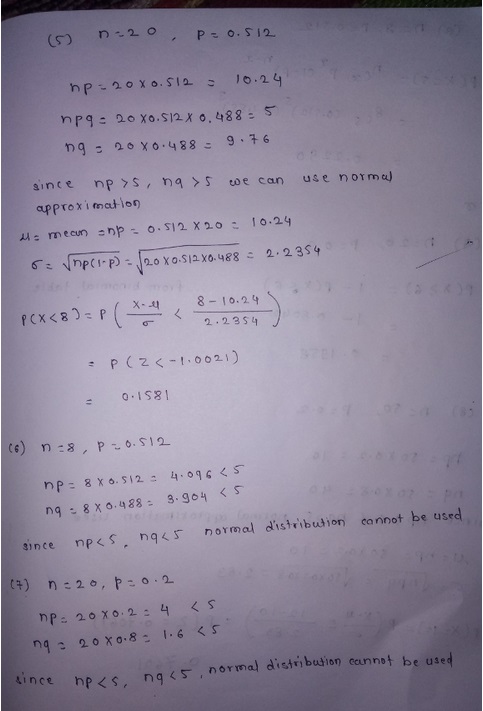 (5) n = 20 , p = 0.512
np = 20 x 0.512 = 10.24
npq = 20 x 0.512 x 0.488 = 5
nq = 20 x 0.488 = 9.76
since np > 5, nq > 5 we can use normal
approximation
μ = mean = np = 0.512 x 20 = 10.24
σ = √np(1-p) = √20 x 0.512 x 0.488 = 2.2354
P(X < 8) = P ( x-μ / σ < 8 - 10.24 / 2.2354 )
= P (Z < -1.0021)
= 0.1581
(6) n = 8, p = 0.512
np = 8 x 0.512 = 4.096 < 5
nq = 8 x 0.488 = 3.904 < 5
since np < 5, nq < 5 normal distribution cannot be used
(7) n = 20, p = 0.2
np = 20 x 0.2 = 4 < 5
nq = 20 x 0.8 = 1.6 < 5
since np < 5, nq < 5, normal distribution cannot be used